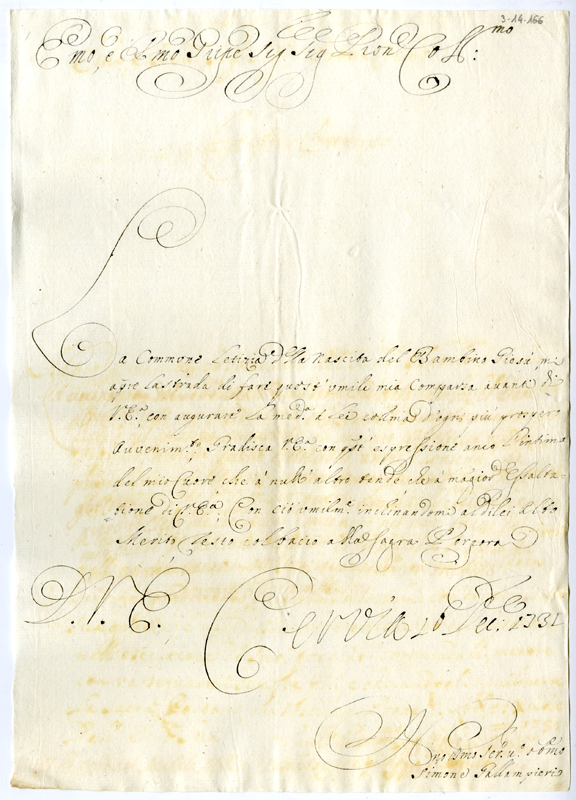 3-14-166
Emo, e Rmo Pñpe Sig Sig Pron Coll:mo
La Commune Letizia della Nascita del Bambino Giesù mi
apre la strada di fare quest' umile mia Comparsa avanti di
V.Eª. con augurare la medª. à lei colma d'ogni più prospero
Avvenimto. Gradisca V.Eª. con qstˊ espressione anco l'intimo
del mio Cuore che à null' altro tende che à magior Essalta-
tione di V. Eª., Con ciò umilmte. inclinandomi al di lei alto
Merito, resto col bacio alla Sagra Porpora
D. V. E.
Cervia 10 Dec: 1731
Umo Dmo Ser.re Obmo
Simone Pallampieri